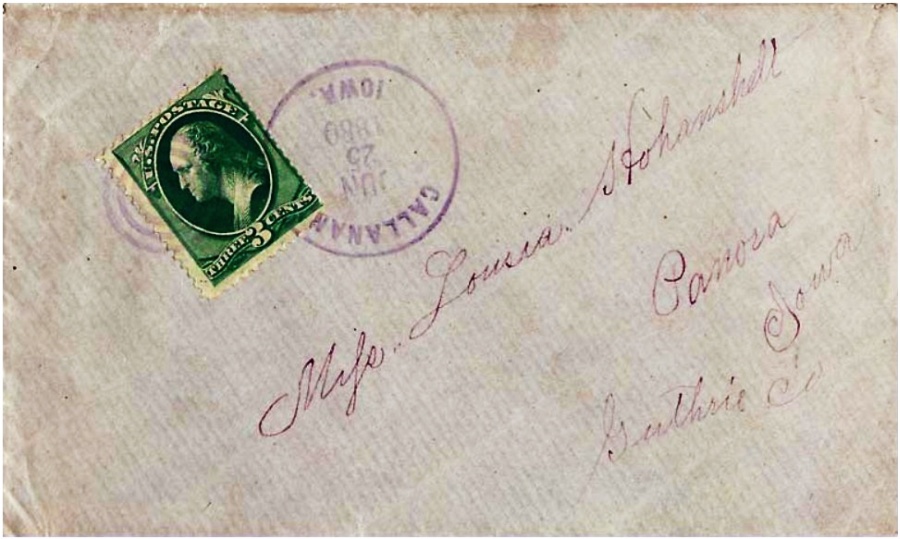 U.S. POSTAGE
THREE 3 CENTS
CALLANAN
JUN
25
1880
IOWA.
Miss. Louisa
Panora
Iowa
Guthrie Co